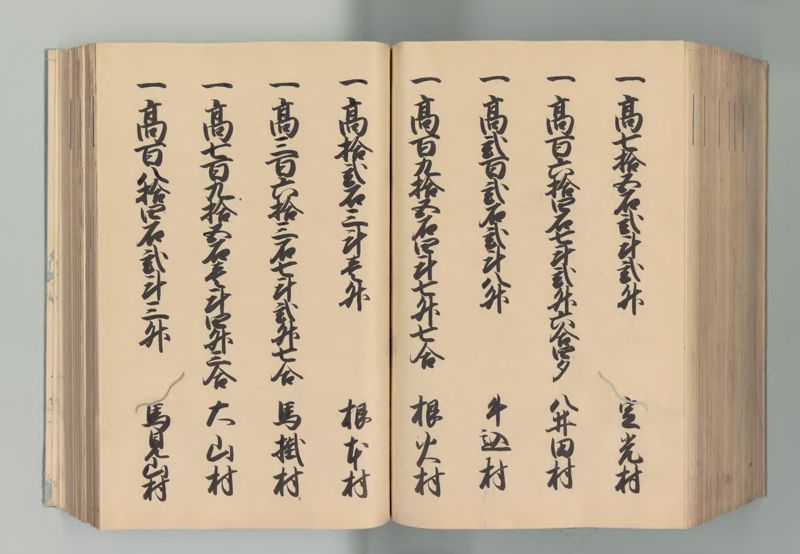 一高七拾五石弐斗弐升 定光村
一高百六拾四石七斗弐升六合四夕 八井田村
一高弐百弐石弐斗八升 牛込村
一高百九拾五石四斗七升七合 根火村
一高拾弐石三斗壱升 根本村
一高三百六拾三石七斗弐升七合 馬掛村
一高七百九拾五石壱斗四升三合 大山村
一高百八拾四石弐斗三升 馬見山村